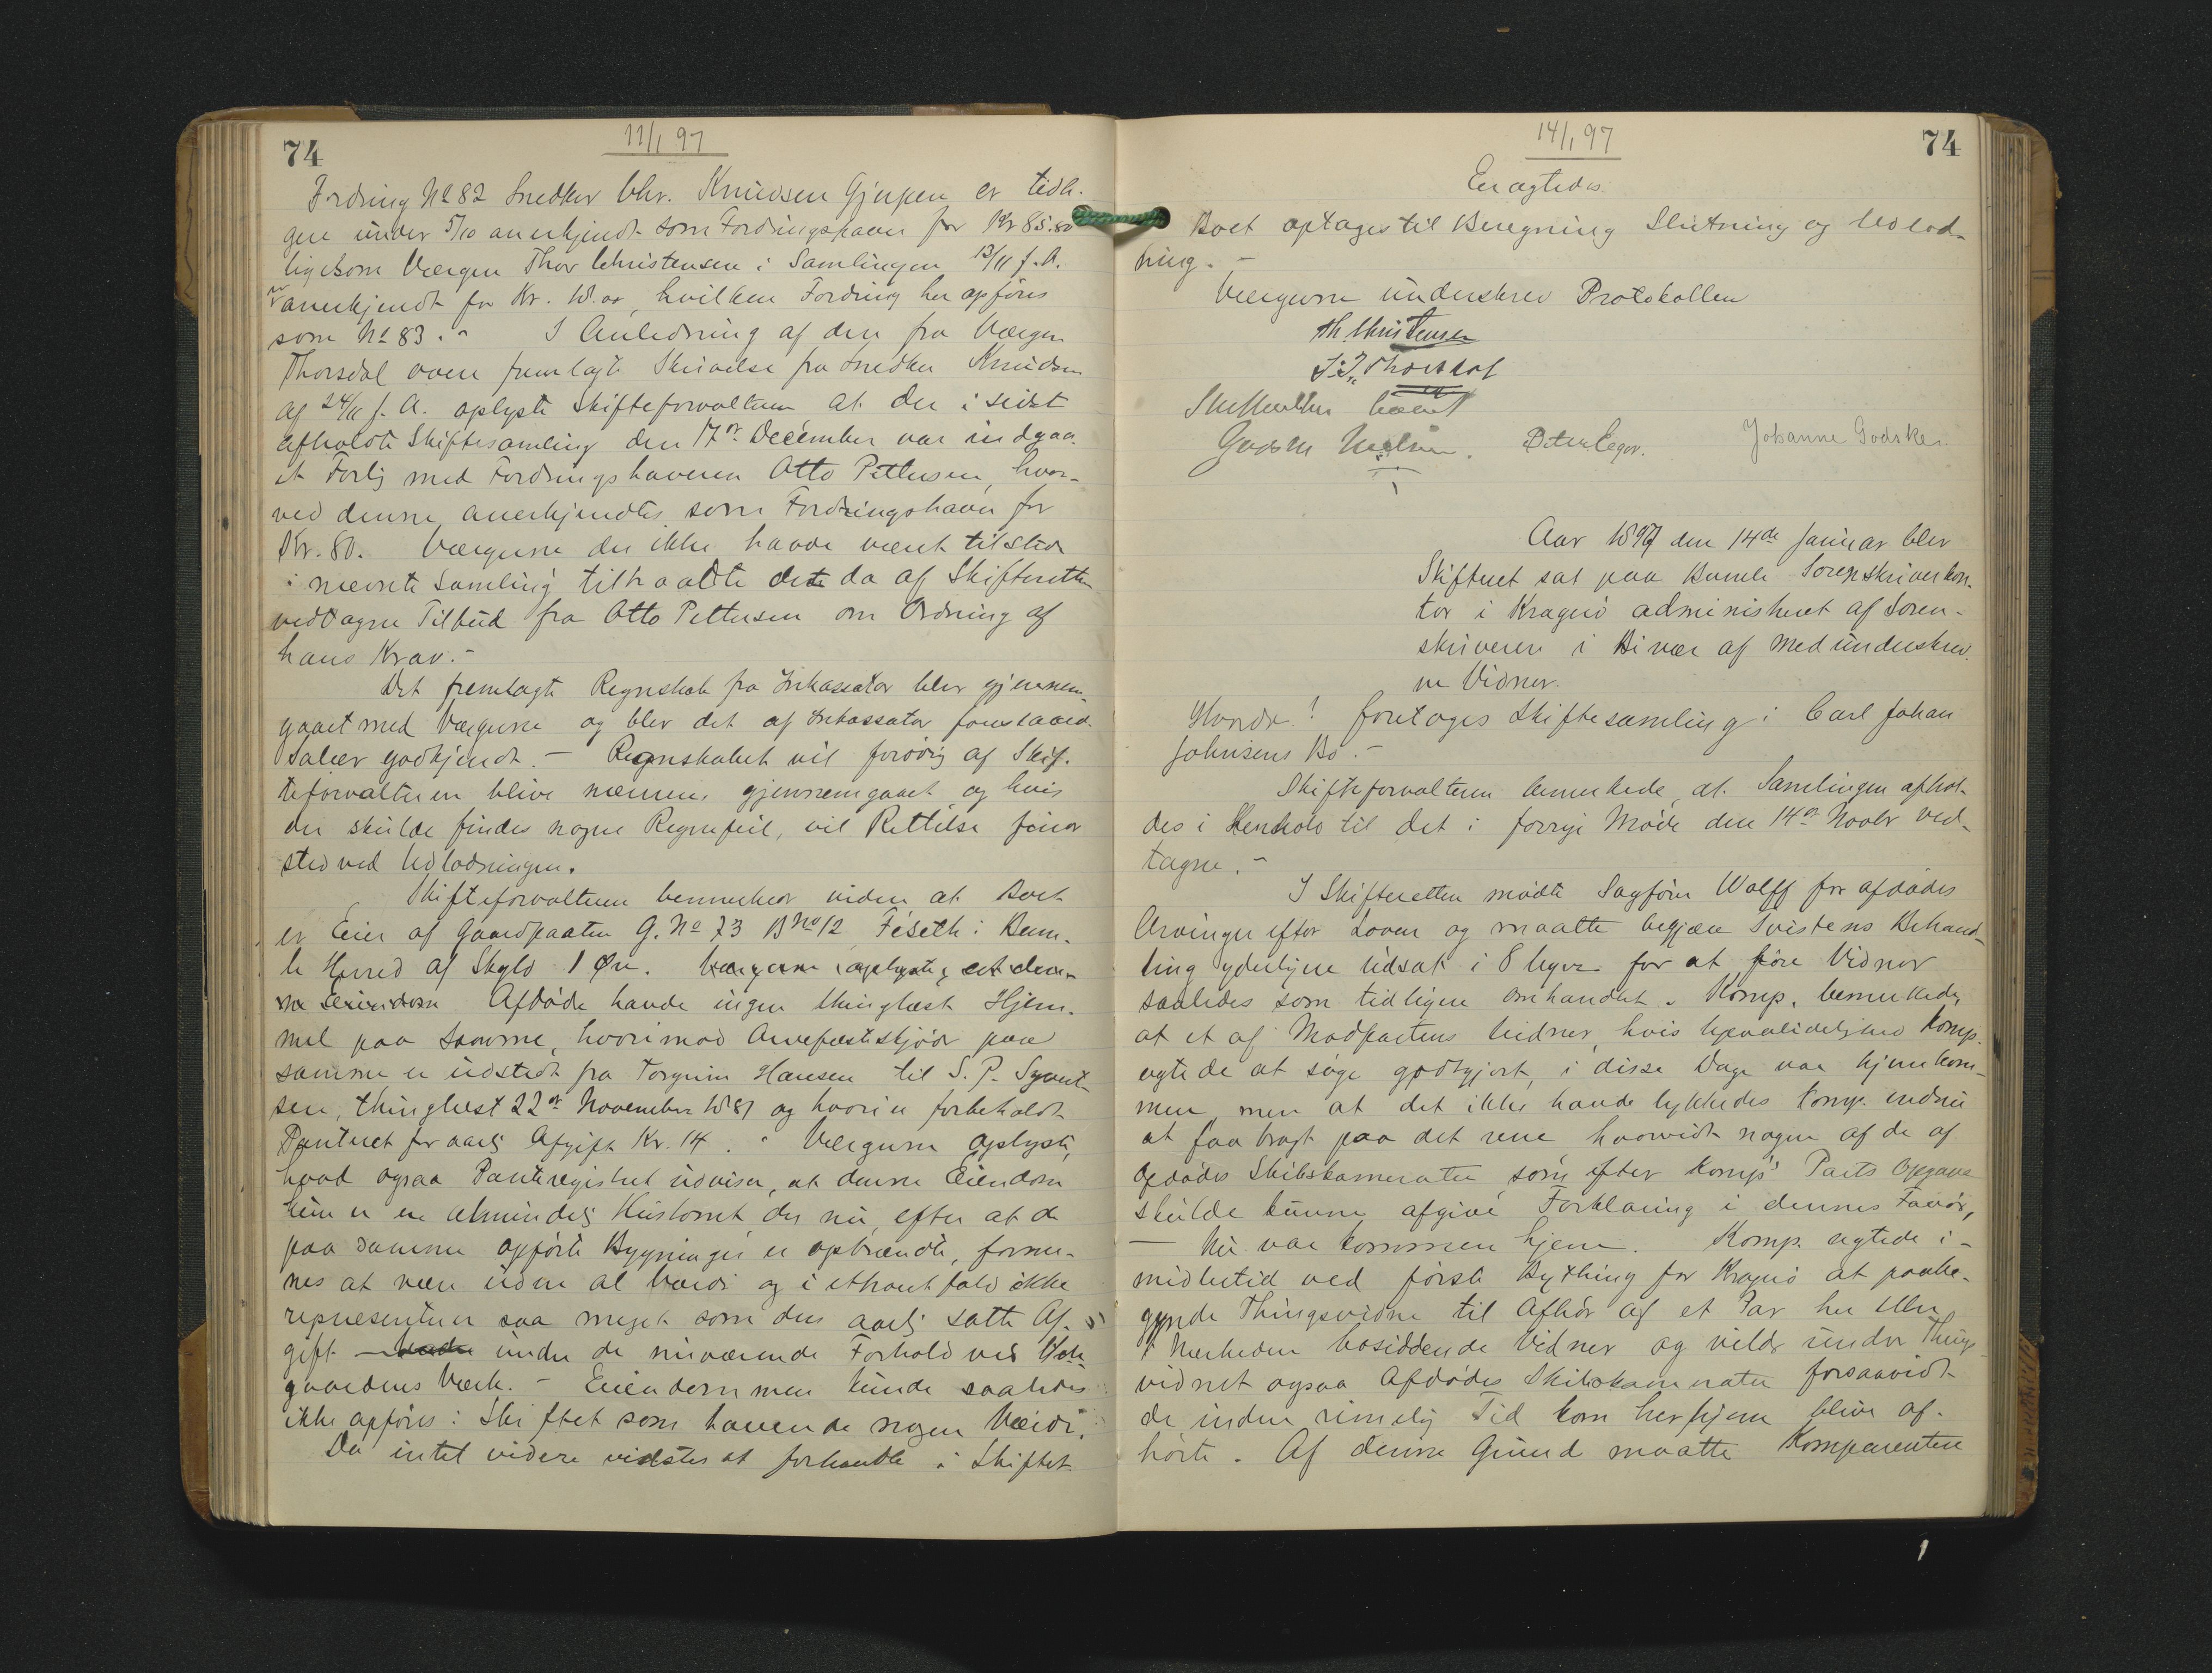 74
11/1 97
Fordring No 82 Snedker Chr. Knudsen Gjerpen er tidli-
gere under 5/10 anerkjendt som Fordringshaver for Kr 85.80
ligesom Værgen Thor Christensen i Samlingen 13/11 f. A.
er anerkjendt for Kr. 10.00, hvilken Fordring her opføres
som No 83. - I Anledning af den fra Værgen
Thorsdal oven fremlagte Skrivelse fra Snedker Knudsen
af 24/11 f. A. oplyste Skifteforvalteren at der i sidst
afholdte Skiftesamling den 17de December var indgaaet
et Forlig med Fordringshaveren Otto Pettersen, hvor-
ved denne anerkjendtes som Fordringshaver for
Kr. 80. Værgerne der ikke havde været tilstede
i nævnte Samling tiltraadte dette da af Skifteretten
vedtagne Tilbud fra Otto Pettersen om Ordning af
hans Krav. -
Det fremlagte Regnskab fra Inkassator blev gjennem-
gaaet med Værgerne og blev det af Inkassator foreslaaede
Salær godkjendt. - Regnskabet vil forøvrig af Skif-
teforvalteren blive nærmere gjennemgaaet og hvis
der skulde findes nogen Regnefeil, vil Rettelse finde
sted ved Udlodningen.
Skifteforvalteren bemærker videre at Boet
er Eier af Gaardparten G. No 73 B No 12 Feseth i Bam-
le Herred af Skyld 1 Øre. Værgerne oplyste, at den-
ne Eiendom Afdøde havde ingen thinglæst Hjem-
mel paa samme, hvorimod Arvefæsteskjøde paa
samme er udstedt fra Torgrim Hansen til S. P. Syvert-
sen, thinglæst 22de November 1881 og hvori er forbeholdt
Panteret for aarlig Afgift Kr. 14. - Værgerne oplyste,
hvad ogsaa Panteregistret udviser, at denne Eiendom
kun er en almindelig Hustomt der nu, efter at de
paa samme opførte Bygninger er opbrændte, forme-
nes at være uden al Værdi og i ethvert fald ikke
representerer saa meget som den aarlig satte Af-
gift under de nuværende Forhold ved
gaardenes Værk. - Eiendommen kunde saaledes
ikke opføres i Skiftet som havende nogen Værdi.
Da intet videre vidstes at forhandle i Skiftet
74
14/1 97
Eragtedes:
Boet optages til Beregning Slutning og Udlod-
ning. -
Værgerne underskrev Protokollen
Th. Christensen
S. I. Thorsdal
Skifteretten hævet
Peter Legar. Johanne Godske.
Aar 1897 den 14de Januar blev
Skifteret sat paa Bamle Sorenskriverkon-
tor i Kragerø administreret af Soren-
skriveren i Bivær af medunderskrev-
ne Vidner.
Hvorda! foretages Skiftesamling i Carl Johan
Johnsens Bo. -
Skifteforvalteren bemærkede, at Samlingen afhol-
des i Henhold til det i forrige Møde den 14de Novbr ved-
tagne. -
I Skifteretten mødte Sagfører Wolff for afdødes
Arvinger efter Loven og maatte begjære Tvistens Behand-
ling yderligere udsat i 8 Uger for at føre Vidner
saaledes som tidligere omhandlet. Komp. bemærkede,
at et af Modpartens Vidner, hvis Upaalidelighed Komp.
agtede at søge godtgjort, i disse Dage var hjemkom-
men, men at det ikke havde lykkedes Komp. endnu
at faa bragt paa det rene hvorvidt nogen af de af
Afdødes Skibskamerater som efter Komp's Parts Opgave
skulde kunne afgive Forklaring i dennes Favør,
- Nu var kommen hjem. Komp. agtede i-
midlertid ved første Bything for Kragerø at paabe-
gynde Thingsvidne til Afhør af et Par her eller
i Nærheden bosiddende Vidner og vilde under Things-
vidnet ogsaa Afdødes Skibskamerater forsaavidt
de inden rimelig Tid kom her hjem blive af-
hørte. Af denne Grund maatte Komparenten